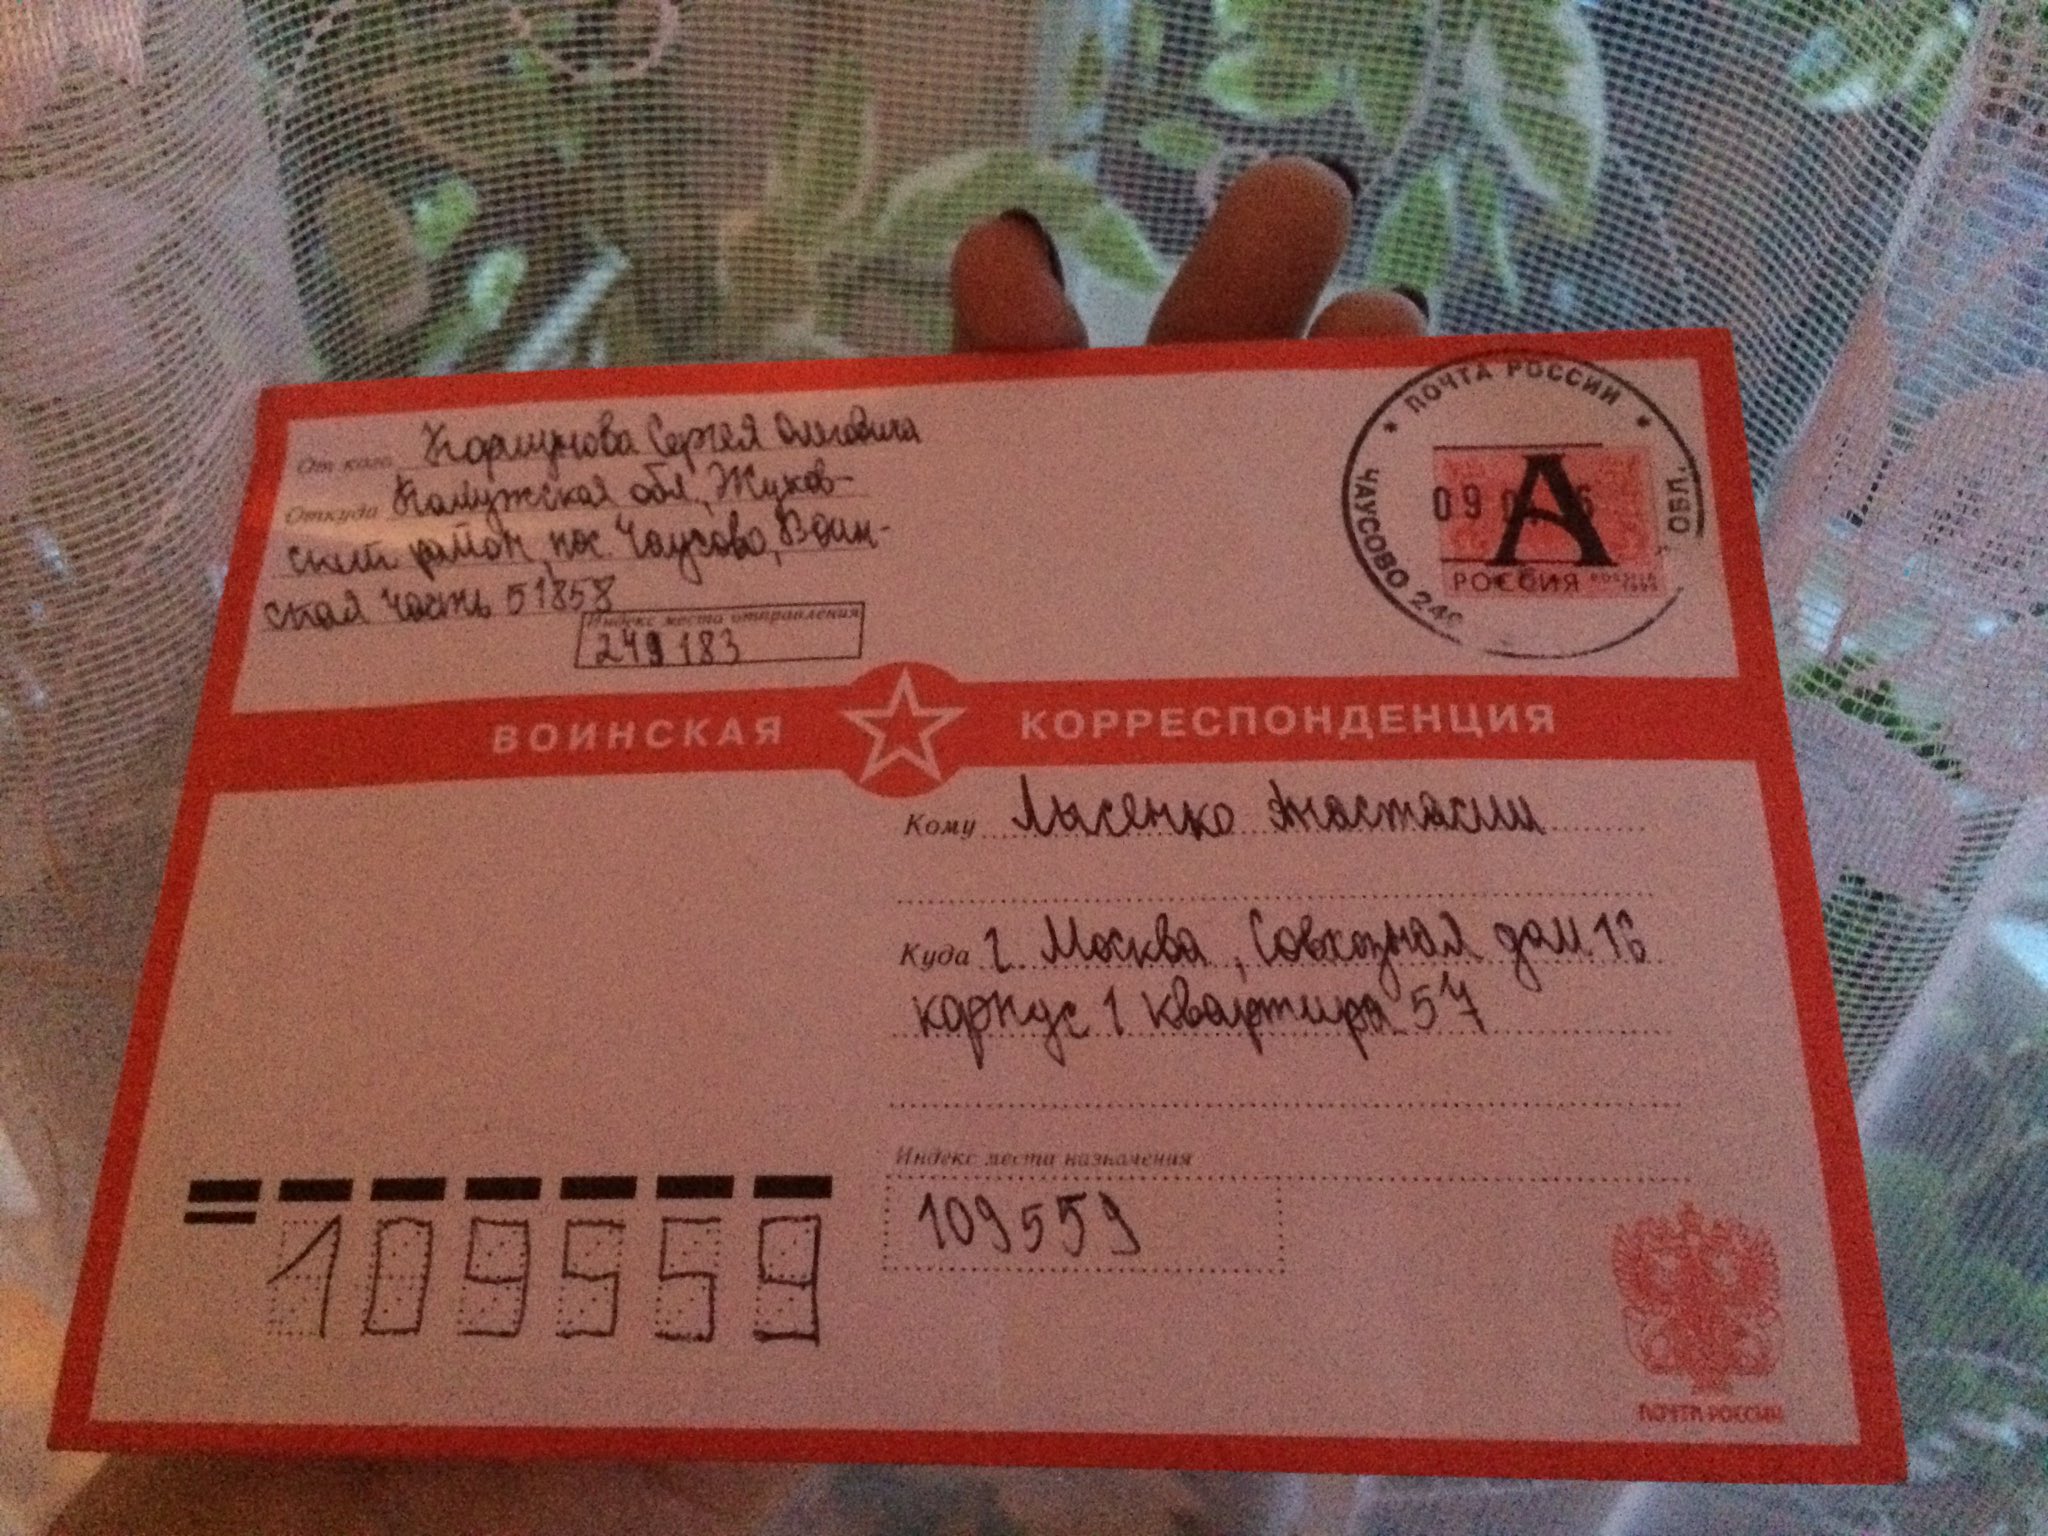 От кого Коршунова Сергея Олеговича
Откуда Калужская обл, Жуков-
ский район, пос. Чаусово, Воин-
ская часть 51858
Индекс места отправления
249183
ПОЧТА РОССИИ
ЧАУСОВО 249
ОБЛ.
09
А
РОССИЯ ROSSIJA
ВОИНСКАЯ КОРРЕСПОНДЕНЦИЯ
Кому Лысенко Анастасии
Куда г. Москва, Совхозная дом 16
корпус 1 квартира 57
Индекс места назначения
109559
109559
ПОЧТА РОССИИ